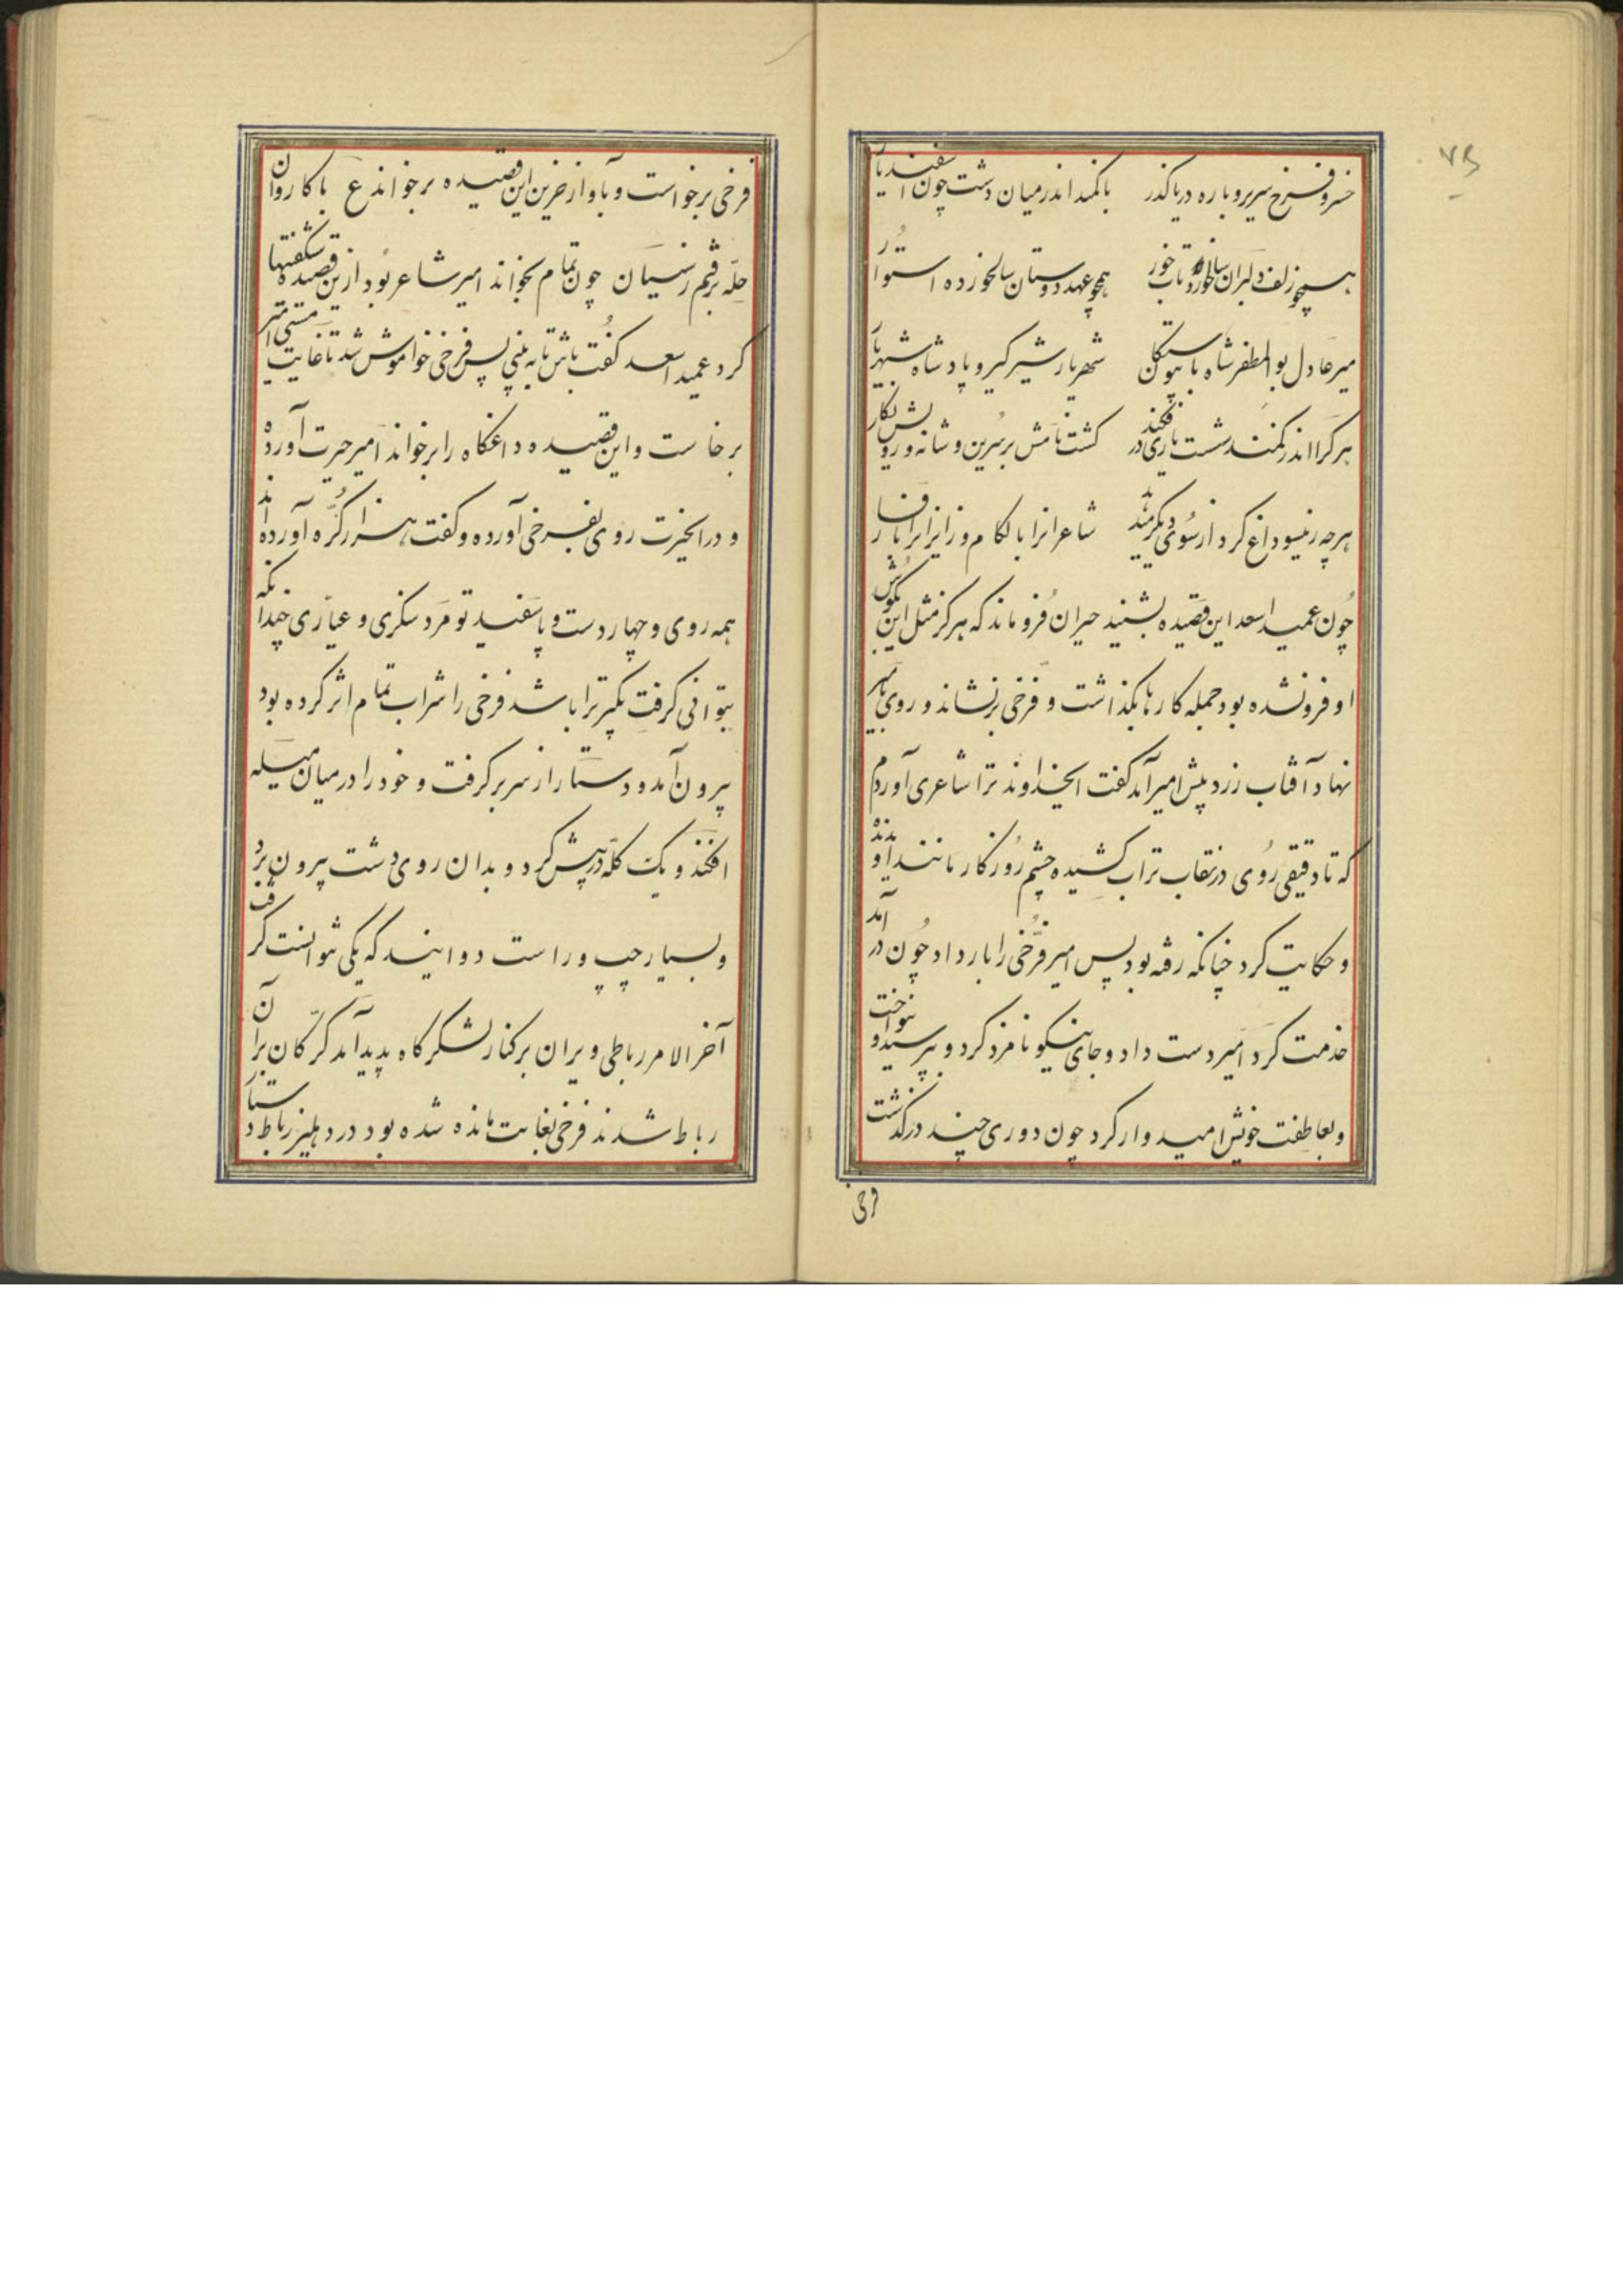 ۷۵
خسرو فرخ سیر بر باره دریا گذر با کمند اندر میان دشت چون اسفندیار
همچو زلف دلبران خورد تاب خورد همچو عهد دوستان سالخورده استوار
میر عادل بوالمظفر شاه با پیوستگان شهریار شیرگیر و پادشاه شهریار
هر کرا اندر کمند شست یازی در فکند کشت نامش بر سرین و شانه و رویش نکار
هر چه زینسو داغ کرد از سوی دیکر هدیه شاعرانرا با لکام و زایرانرا با فسار
چون عمید اسعد این قصیده بشنید حیران فرو ماند که هرکز مثل این بکوش
او فرو نشده بود جمله کارها بکذاشت و فرخی بر نشاند و روی بامیر
نهاد آفتاب زرد پیش امیر آمد کفت ایخداوند ترا شاعری آوردم
که تا دقیقی روی در نقاب تراب کشیده چشم روزکار مانند او ندیده
و حکایت کرد چنانکه رفته بود پس امیر فرخی را بار داد چون در آمد
خدمت کرد امیر دست داد و جای نیکو نامزد کرد و بپرسید و بنواخت
و بعاطفت خویش امیدوار کرد چون دوری چند درکذشت
فرخی
فرخی برخواست و بآواز حزین این قصیده برخواند ع با کاروان
حله برفتم ز سیستان چون تمام بخواند امیر شاعر بود ازین قصیده شکفتیها
کرد عمید اسعد کفت باش تا به بینی پس فرخی خواموش شد تا غایت مستی امیر
برخاست و این قصیده داغکاه را برخواند امیر حیرت آورد
و در انحیرت روی بفرخی آورده و کفت هزار سر کره آورده اند
همه روی و چهار دست و پا سفید تو مرد سکزی و عیاری چندانکه
بتوانی کرفت بکیر ترا باشد فرخی را شراب تمام اثر کرده بود
بیرون آمد و دستار از سر بر کرفت و خود را در میان فسیله
افکند و یک کله در پیش کرد و بدان روی دشت بیرون برد
و بسیار چپ و راست دوانید که یکی نتوانست کرفت
آخر الامر رباطی ویران بر کنار لشکرکاه پدید آمد کرکان بران
رباط شدند فرخی بغایت مانده شده بود در دهلیز رباط دستار